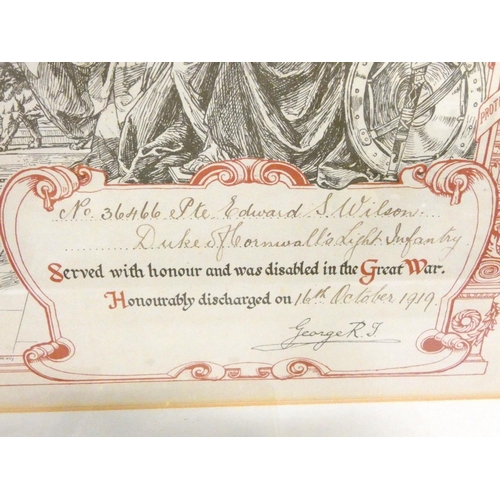 No. 36466 Pte Edward S. Wilson
Duke of Cornwall's Light Infantry.
Served with honour and was disabled in the Great War.
Honourably discharged on 16th October 1919.
George R.I